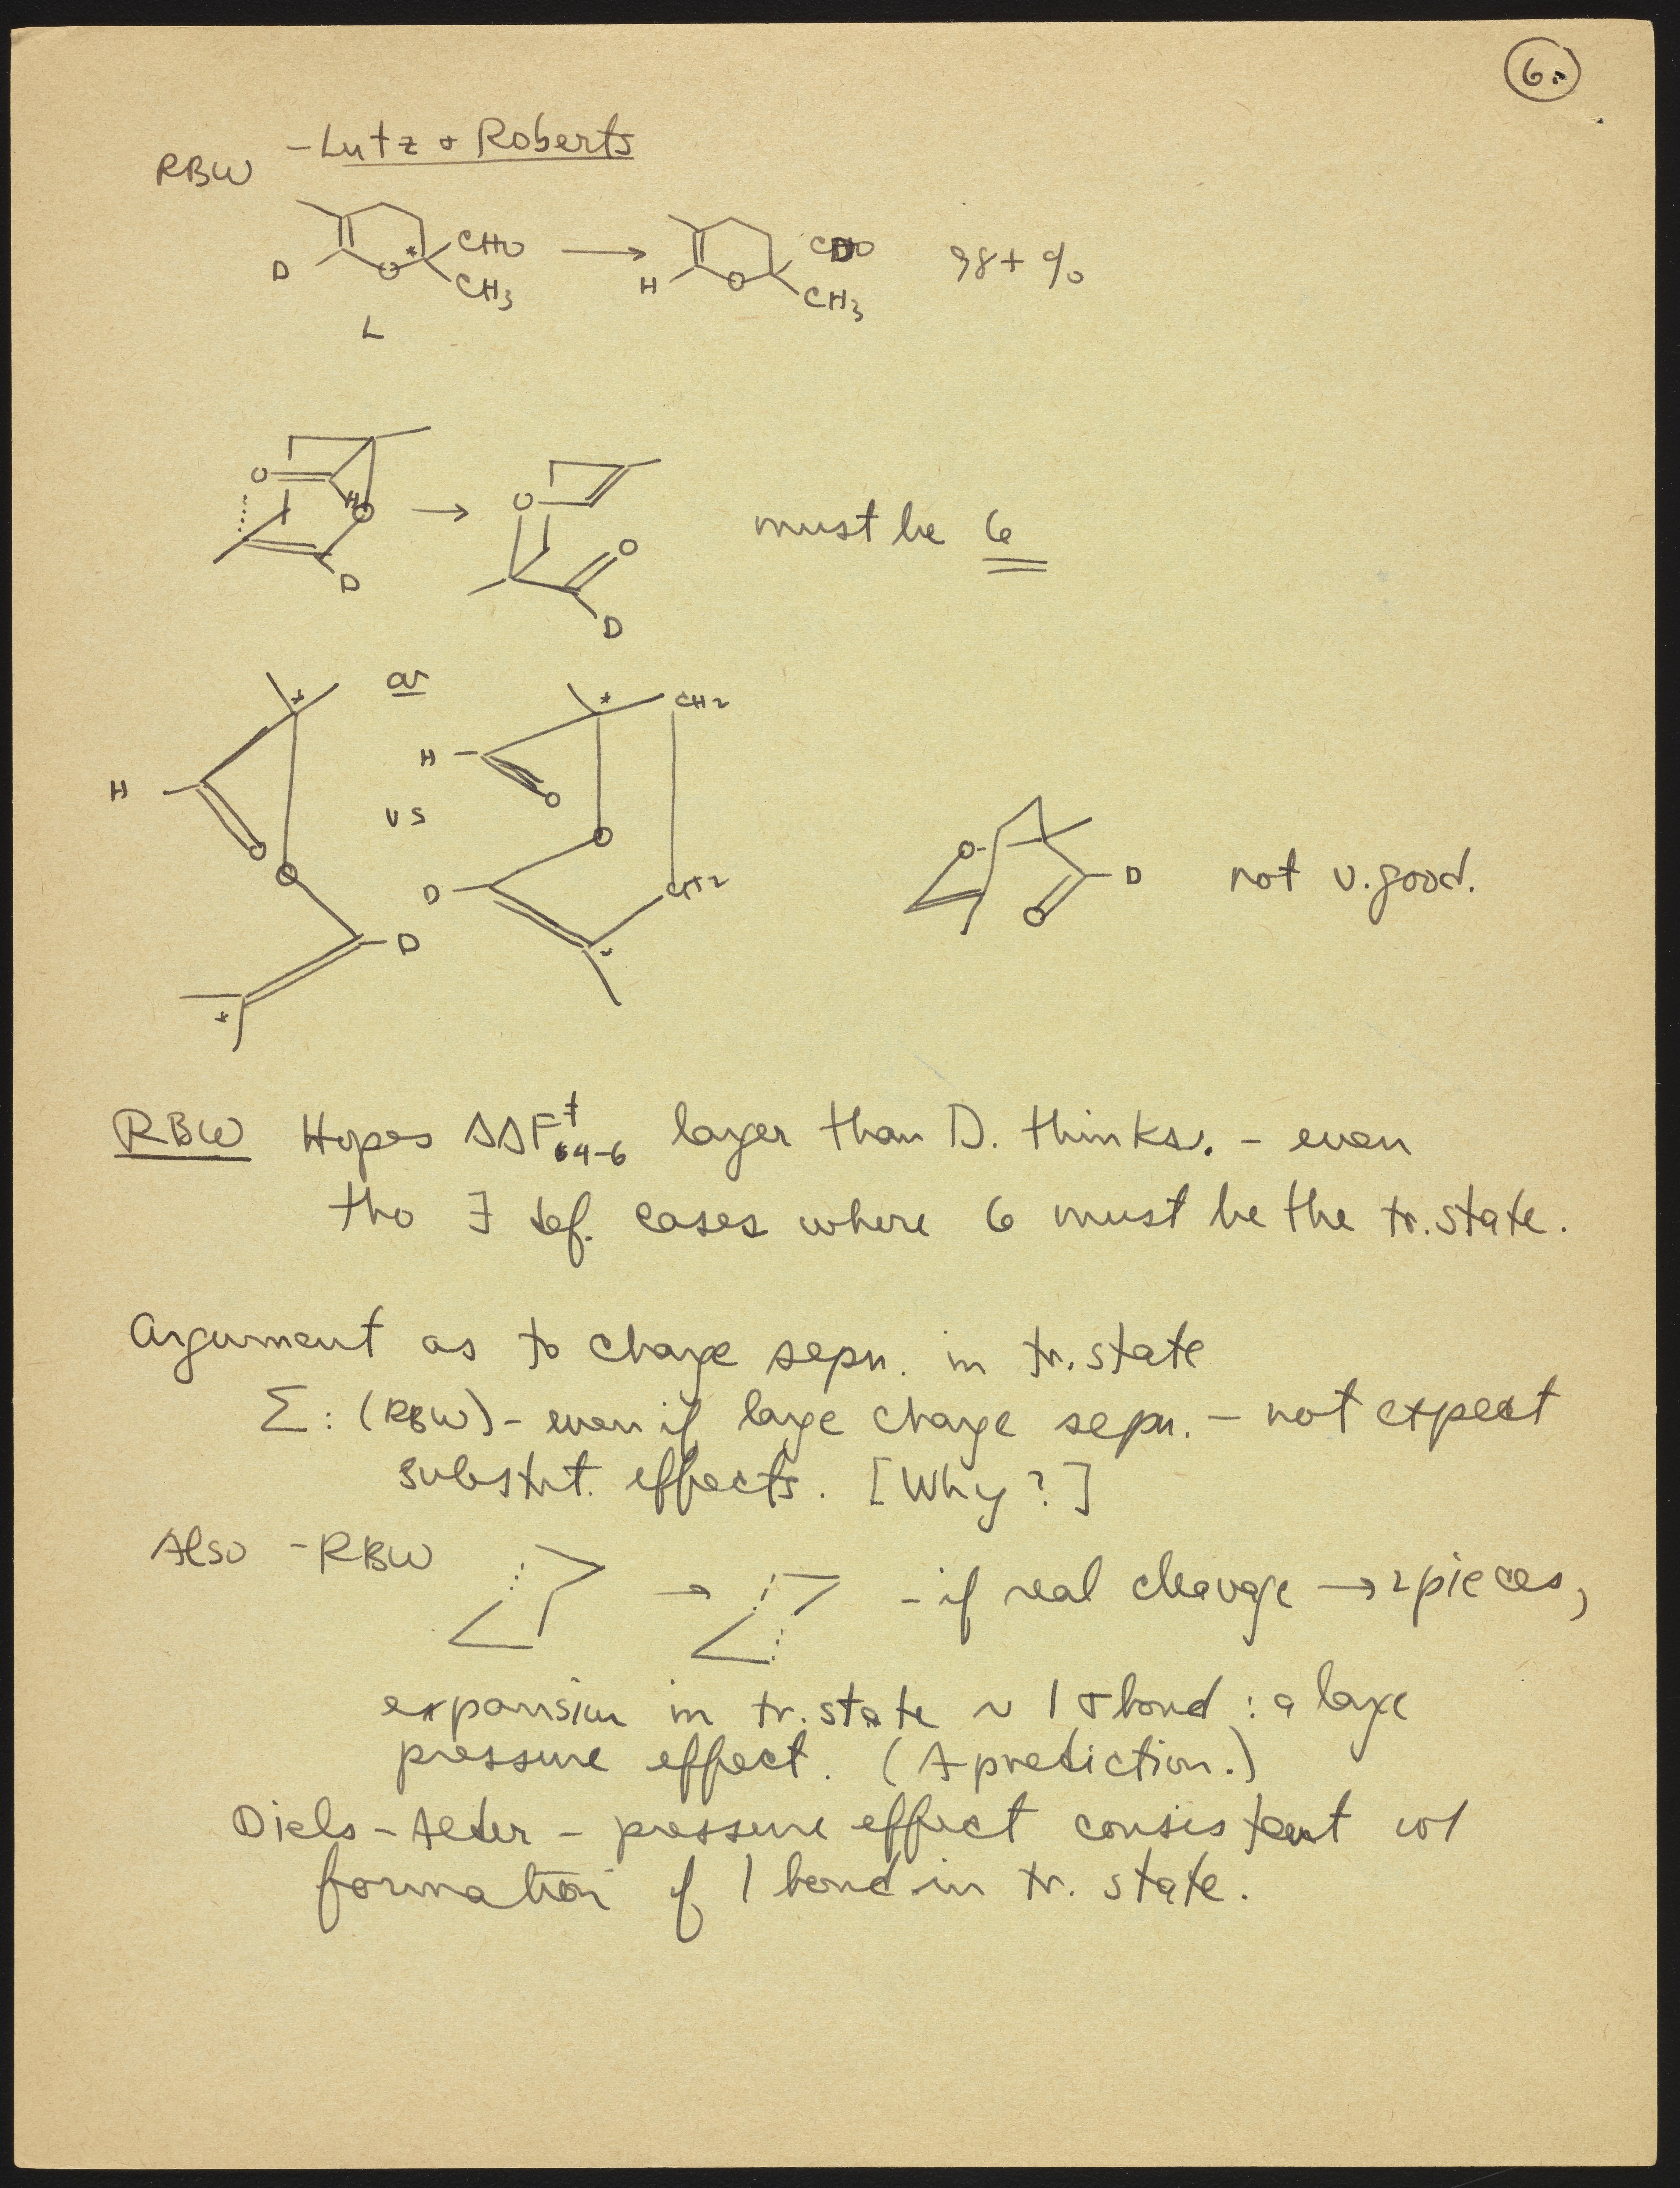 6.
RBW - Lutz + Roberts
D O * CHO CH3 → H O CDO CH3 98+ %
L
O H O D → O O D must be 6
* or * CH2
H O O vs H O O
D D CH2
*
O O D not v. good.
RBW Hopes ΔΔF‡4-6 larger than D. thinks. - even
tho ∃ def. cases where 6 must be the tr. state.
Argument as to charge sepn. in tr. state
Σ: (RBW) - even if large charge sepn. - not expect
substit. effects. [Why?]
Also - RBW → - if real cleavage → 2 pieces,
expansion in tr. state ~ 1 σ bond : a large
pressure effect. (A prediction.)
Diels-Alder - pressure effect consistent w/
formation of 1 bond in tr. state.